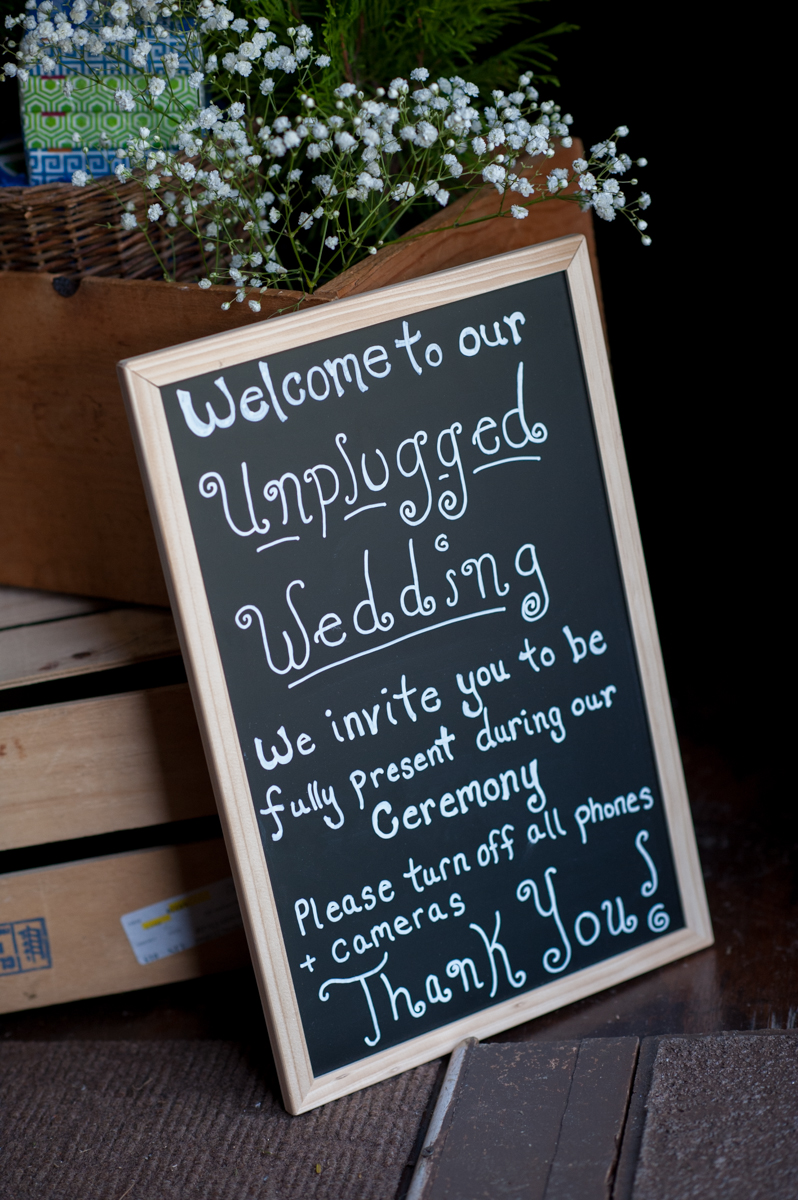 Welcome to our
Unplugged
Wedding
We invite you to be
fully present during our
Ceremony
Please turn off all phones
+ cameras
Thank You!